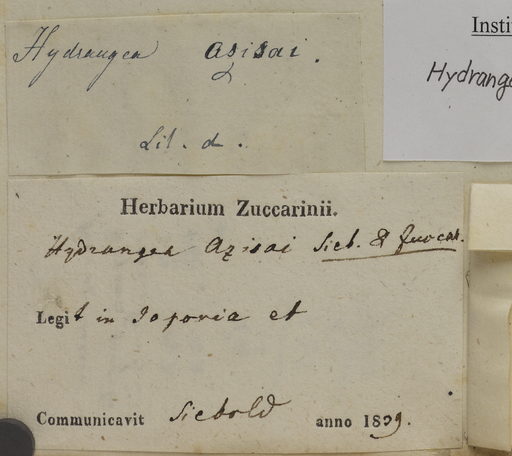 Hydrangea azisai.
Lit. d.
Insti
Hydrange
Herbarium Zuccarinii.
Hydrangea Azisai Sieb. & Zuccar.
Legit in Japonia et
Communicavit Siebold anno 1839.